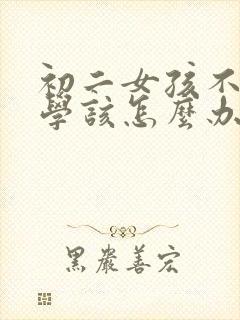 初二女孩不
學該怎麼办
黑嚴善宏